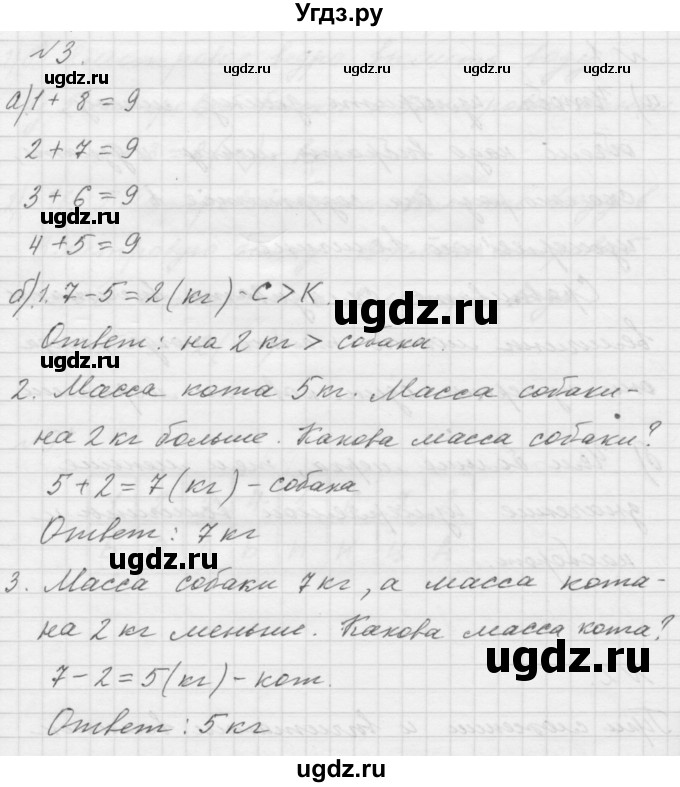 Угдз.ру
№3.
ugdz.ru ugdz.ru ugdz.ru ugdz.ru
а) 1 + 8 = 9
2 + 7 = 9
3 + 6 = 9
ugdz.ru ugdz.ru ugdz.ru ugdz.ru
4 + 5 = 9
б) 1. 7 - 5 = 2 (кг) - С > К.
ugdz.ru
Ответ: на 2 кг > собака.
2. Масса кота 5 кг. Масса собаки -
на 2 кг больше. Какова масса собаки?
5 + 2 = 7 (кг) - собака
Ответ: 7 кг
ugdz.ru
3. Масса собаки 7 кг, а масса кота -
на 2 кг меньше. Какова масса кота?
ugdz.ru
7 - 2 = 5 (кг) - кот.
Ответ: 5 кг
ugdz.ru